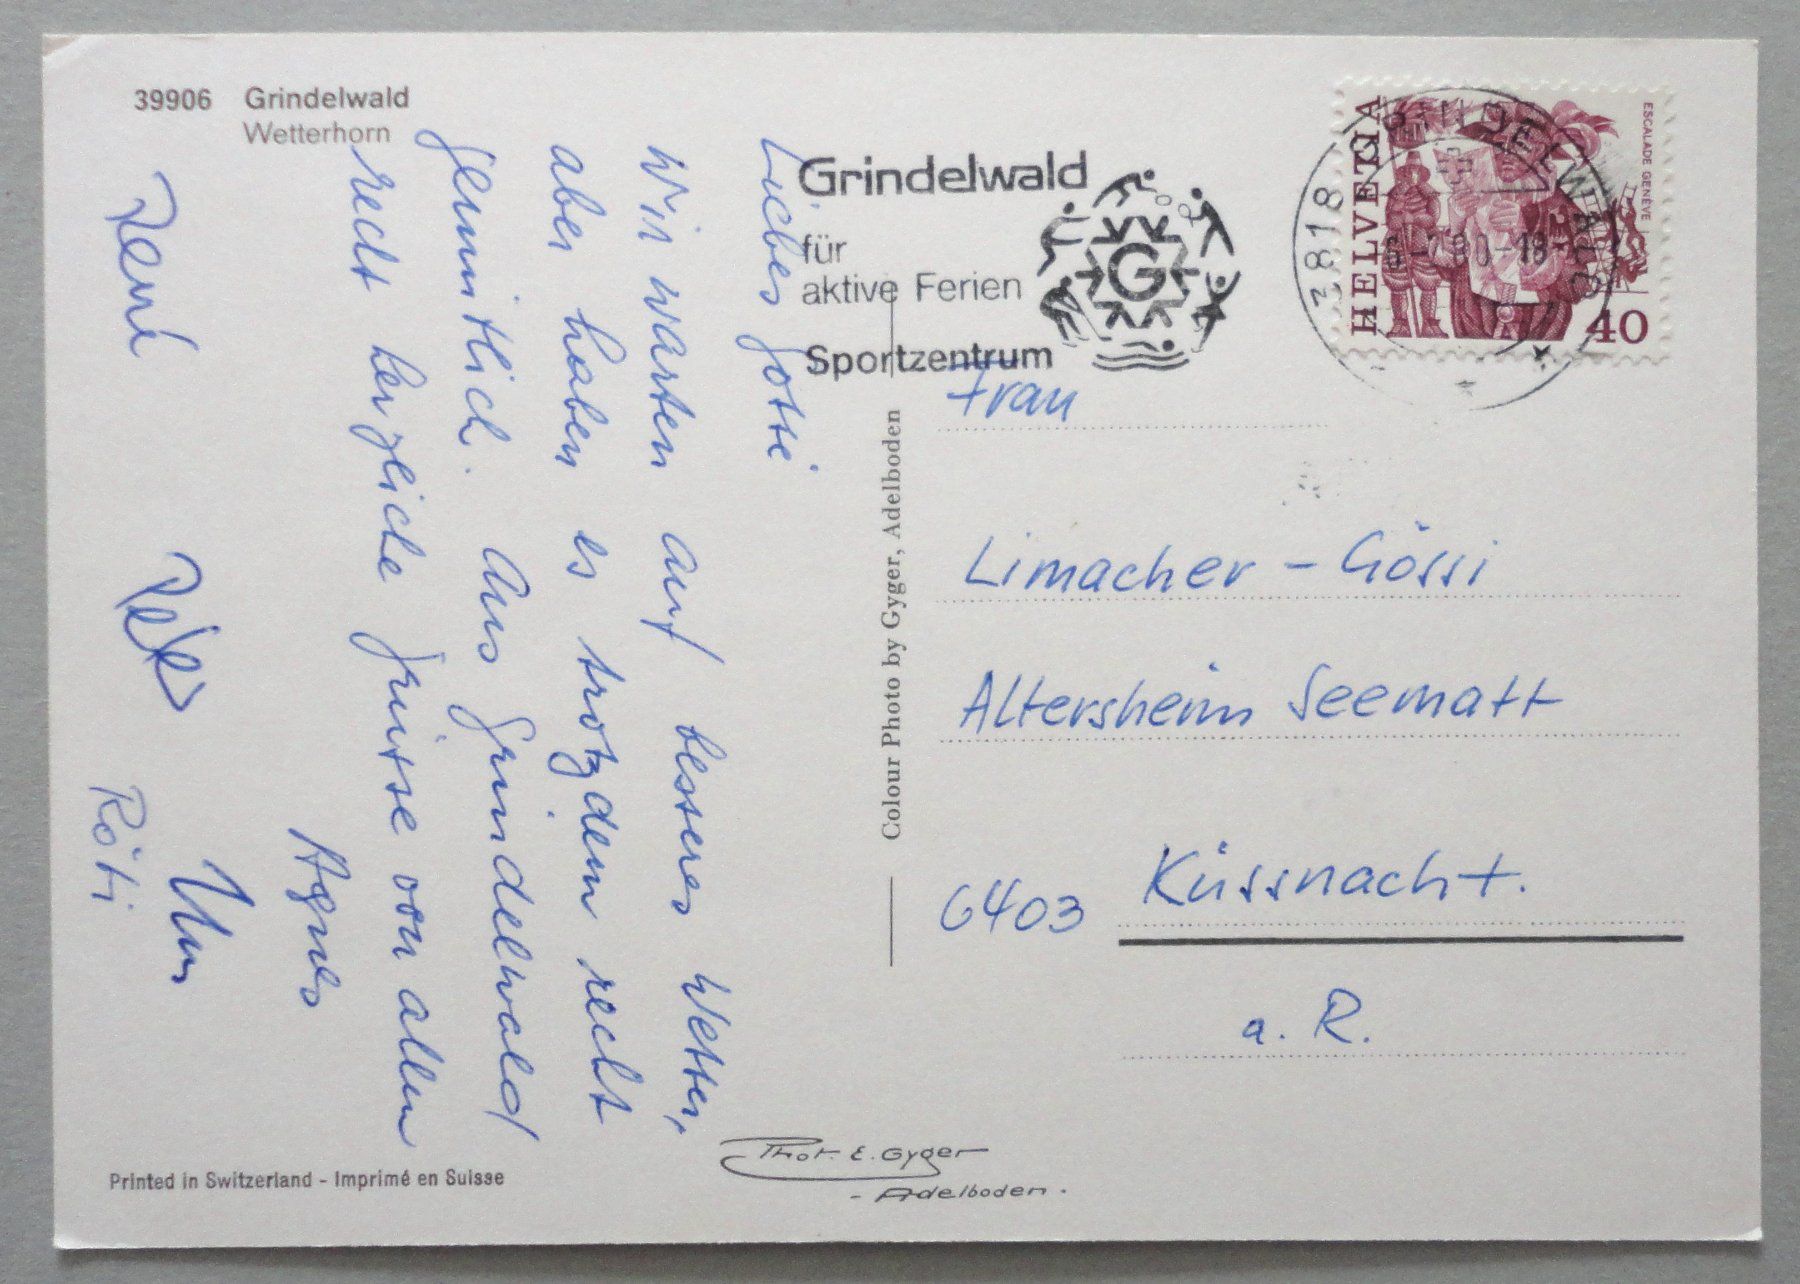 39906 Grindelwald
Wetterhorn
Liebes Gotti
Wir warten auf besseres Wetter,
aber haben es trotzdem recht
gemütlich. Aus Grindelwald
recht herzliche Grüsse von allen
Agnes
Urs
René Peter Röti
Printed in Switzerland - Imprimé en Suisse
Colour Photo by Gyger, Adelboden
Phot. E. Gyger
- Adelboden.
Grindelwald
für
aktive Ferien
Sportzentrum
G
3818 GRINDELWALD
80-18
HELVETIA
ESCALADE GENÈVE
40
Frau
Limacher - Gössi
Altersheim Seematt
6403 Küssnacht.
a. R.